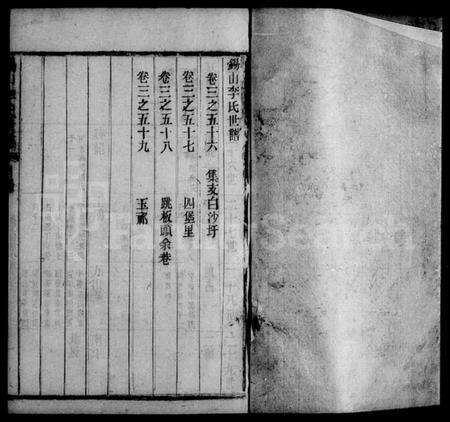 錫山李氏世譜
卷三之五十六 集亥白沙圩
卷三之五十七 四堡里
卷三之五十八 跳板頭余巷
卷三之五十九 玉祁